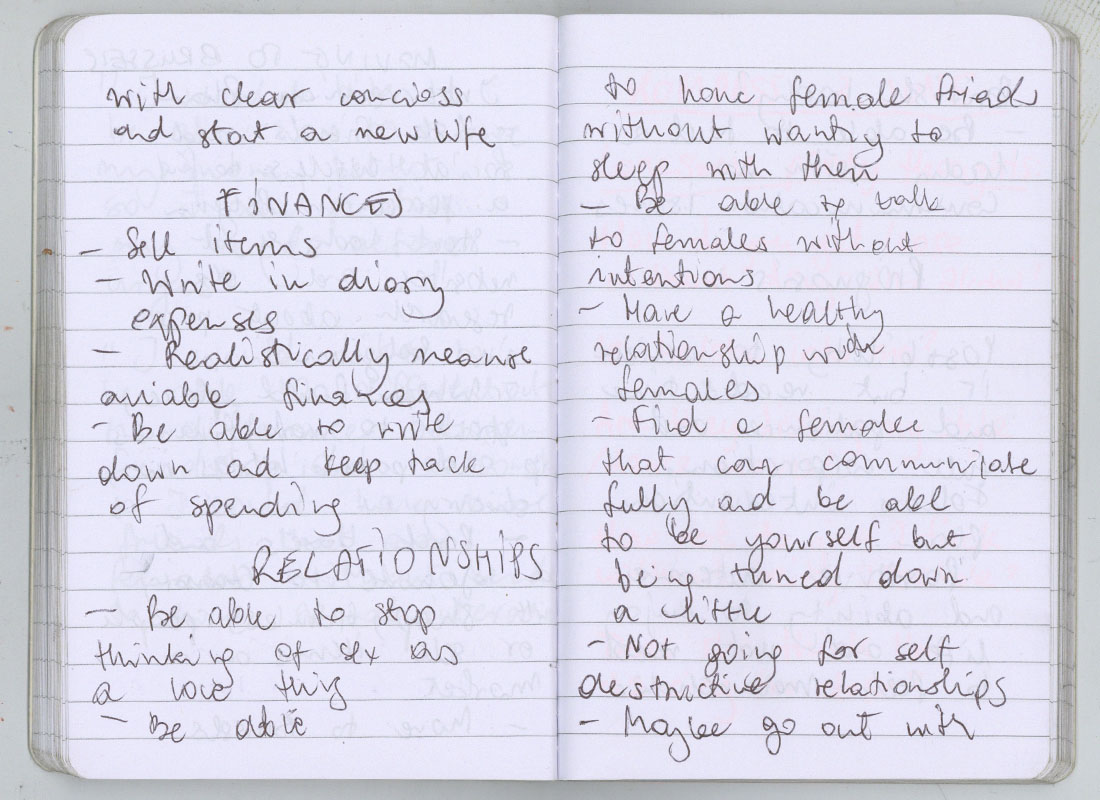 with clear concioss
and start a new life
FINANCES
- Sell items
- Write in diary
expenses
- Realistically measure
aviable finances
- Be able to write
down and keep track
of spending
RELATIONSHIPS
- Be able to stop
thinking of sex as
a love thing
- Be able
to have female friends
without wanting to
sleep with them
- Be able to talk
to females without
intentions
- Have a healthy
relationship with
females
- Find a female
that can communicate
fully and be able
to be yourself but
being turned down
a little
- Not going for self
destructive relationships
- Maybe go out with